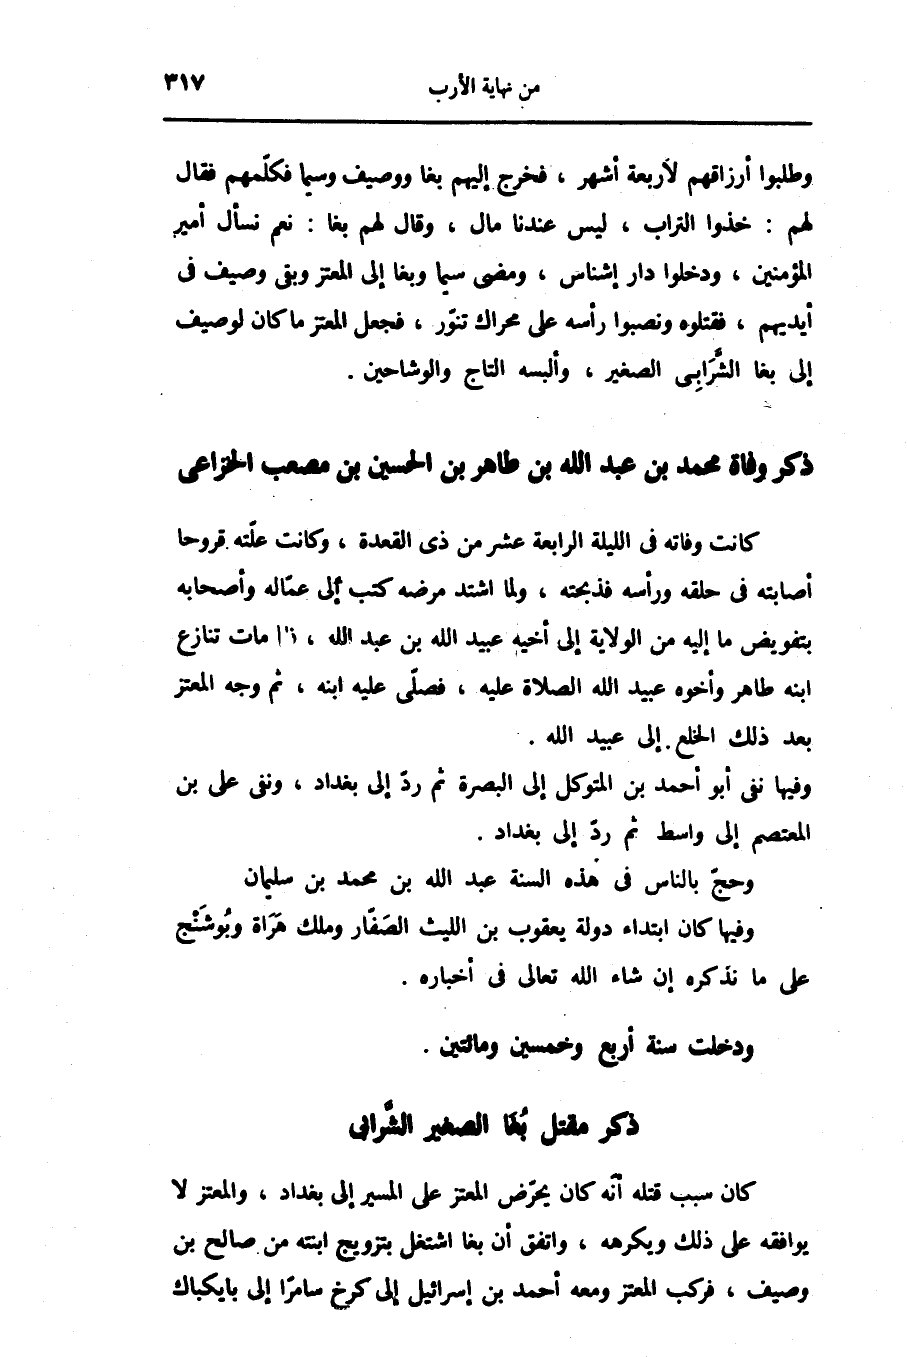 من نهاية الأرب ٣١٧
وطلبوا أرزاقهم لأربعة أشهر ، فخرج إليهم بغا ووصيف وسيما فكلّمهم فقال
لهم : خذوا التراب ، ليس عندنا مال ، وقال لهم بغا : نعم نسأل أمير
المؤمنين ، ودخلوا دار إشناس ، ومضى سيما وبغا إلى المعتز وبقى وصيف فى
أيديهم ، فقتلوه ونصبوا رأسه على محراك تنوّر ، فجعل المعتز ما كان لوصيف
إلى بغا الشَّرَابِى الصغير ، وألبسه التاج والوشاحين .
ذكر وفاة محمد بن عبد الله بن طاهر بن الحسين بن مصعب الخزاعى
كانت وفاته فى الليلة الرابعة عشر من ذى القعدة ، وكانت علّته قروحا
أصابته فى حلقه ورأسه فذبحته ، ولما اشتد مرضه كتب إلى عمّاله وأصحابه
بتفويض ما إليه من الولاية إلى أخيه عبيد الله بن عبد الله ، مات تنازع
ابنه طاهر وأخوه عبيد الله الصلاة عليه ، فصلّى عليه ابنه ، ثم وجه المعتز
بعد ذلك الخلع إلى عبيد الله .
وفيها نفى أبو أحمد بن المتوكل إلى البصرة ثم ردّ إلى بغداد ، ونفى على بن
المعتصم إلى واسط ثم ردّ إلى بغداد .
وحجّ بالناس فى هذه السنة عبد الله بن محمد بن سليمان
وفيها كان ابتداء دولة يعقوب بن الليث الصَفّار وملك هَرَاة وبُوشَنْج
على ما نذكره إن شاء الله تعالى فى أخباره .
ودخلت سنة أربع وخمسين ومائتين .
ذكر مقتل بُغَا الصغير الشَّرابى
كان سبب قتله أنّه كان يحرّض المعتز على المسير إلى بغداد ، والمعتز لا
يوافقه على ذلك ويكرهه ، واتفق أن بغا اشتغل بتزويج ابنته من صالح بن
وصيف ، فركب المعتز ومعه أحمد بن إسرائيل إلى كرخ سامرّا إلى بايكباك